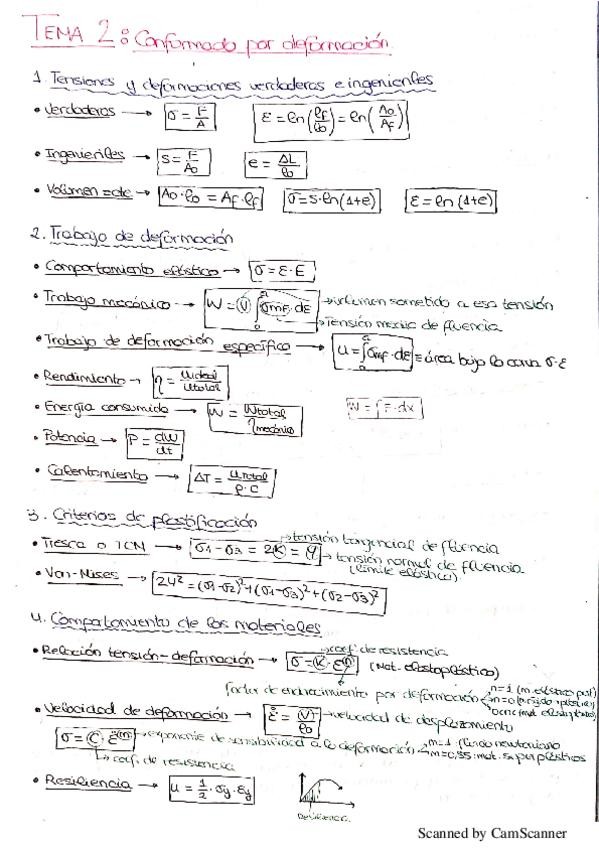 TEMA 2: Conformado por deformación.
1. Tensiones y deformaciones verdaderas e ingenieriles
• Verdaderas → σ = F/A   ε = ln(lf/l0) = ln(A0/Af)
• Ingenieriles → s = F/A0   e = ΔL/l0
• Volumen = cte → A0·l0 = Af·lf   σ = s·ln(1+e)   ε = ln(1+e)
2. Trabajo de deformación
• Comportamiento elástico → σ = ε·E
• Trabajo mecánico → W = V ∫ σmf·dε → volumen sometido a esa tensión
→ Tensión media de fluencia
• Trabajo de deformación específico → u = ∫ σmf·dε = área bajo la curva σ-ε
• Rendimiento → η = uideal/utotal
• Energía consumida → W = Wtotal/ηmecánico   W = ∫F·dx
• Potencia → P = dW/dt
• Calentamiento → ΔT = utotal/ρ·C
3. Criterios de plastificación
• Tresca o TCM → σ1 - σ3 = 2K = Y → tensión tangencial de fluencia
→ tensión normal de fluencia
(límite elástico).
• Von-Mises → 2Y² = (σ1-σ2)² + (σ1-σ3)² + (σ2-σ3)²
4. Comportamiento de los materiales
→ coef. de resistencia
• Relación tensión-deformación → σ = K·ε^n (Mat. elastoplástico)
factor de endurecimiento por deformación n=1 (m. elástico perf)
n=0
• Velocidad de deformación → ε̇ = V/l0 → velocidad de desplazamiento
σ = C·ε̇^m → exponente de sensibilidad a la deformación m=1: fluido newtoniano
m=0,55: mat. superplásticos
→ coef. de resistencia
• Resiliencia → u = 1/2·σy·εy
Resiliencia.
Scanned by CamScanner